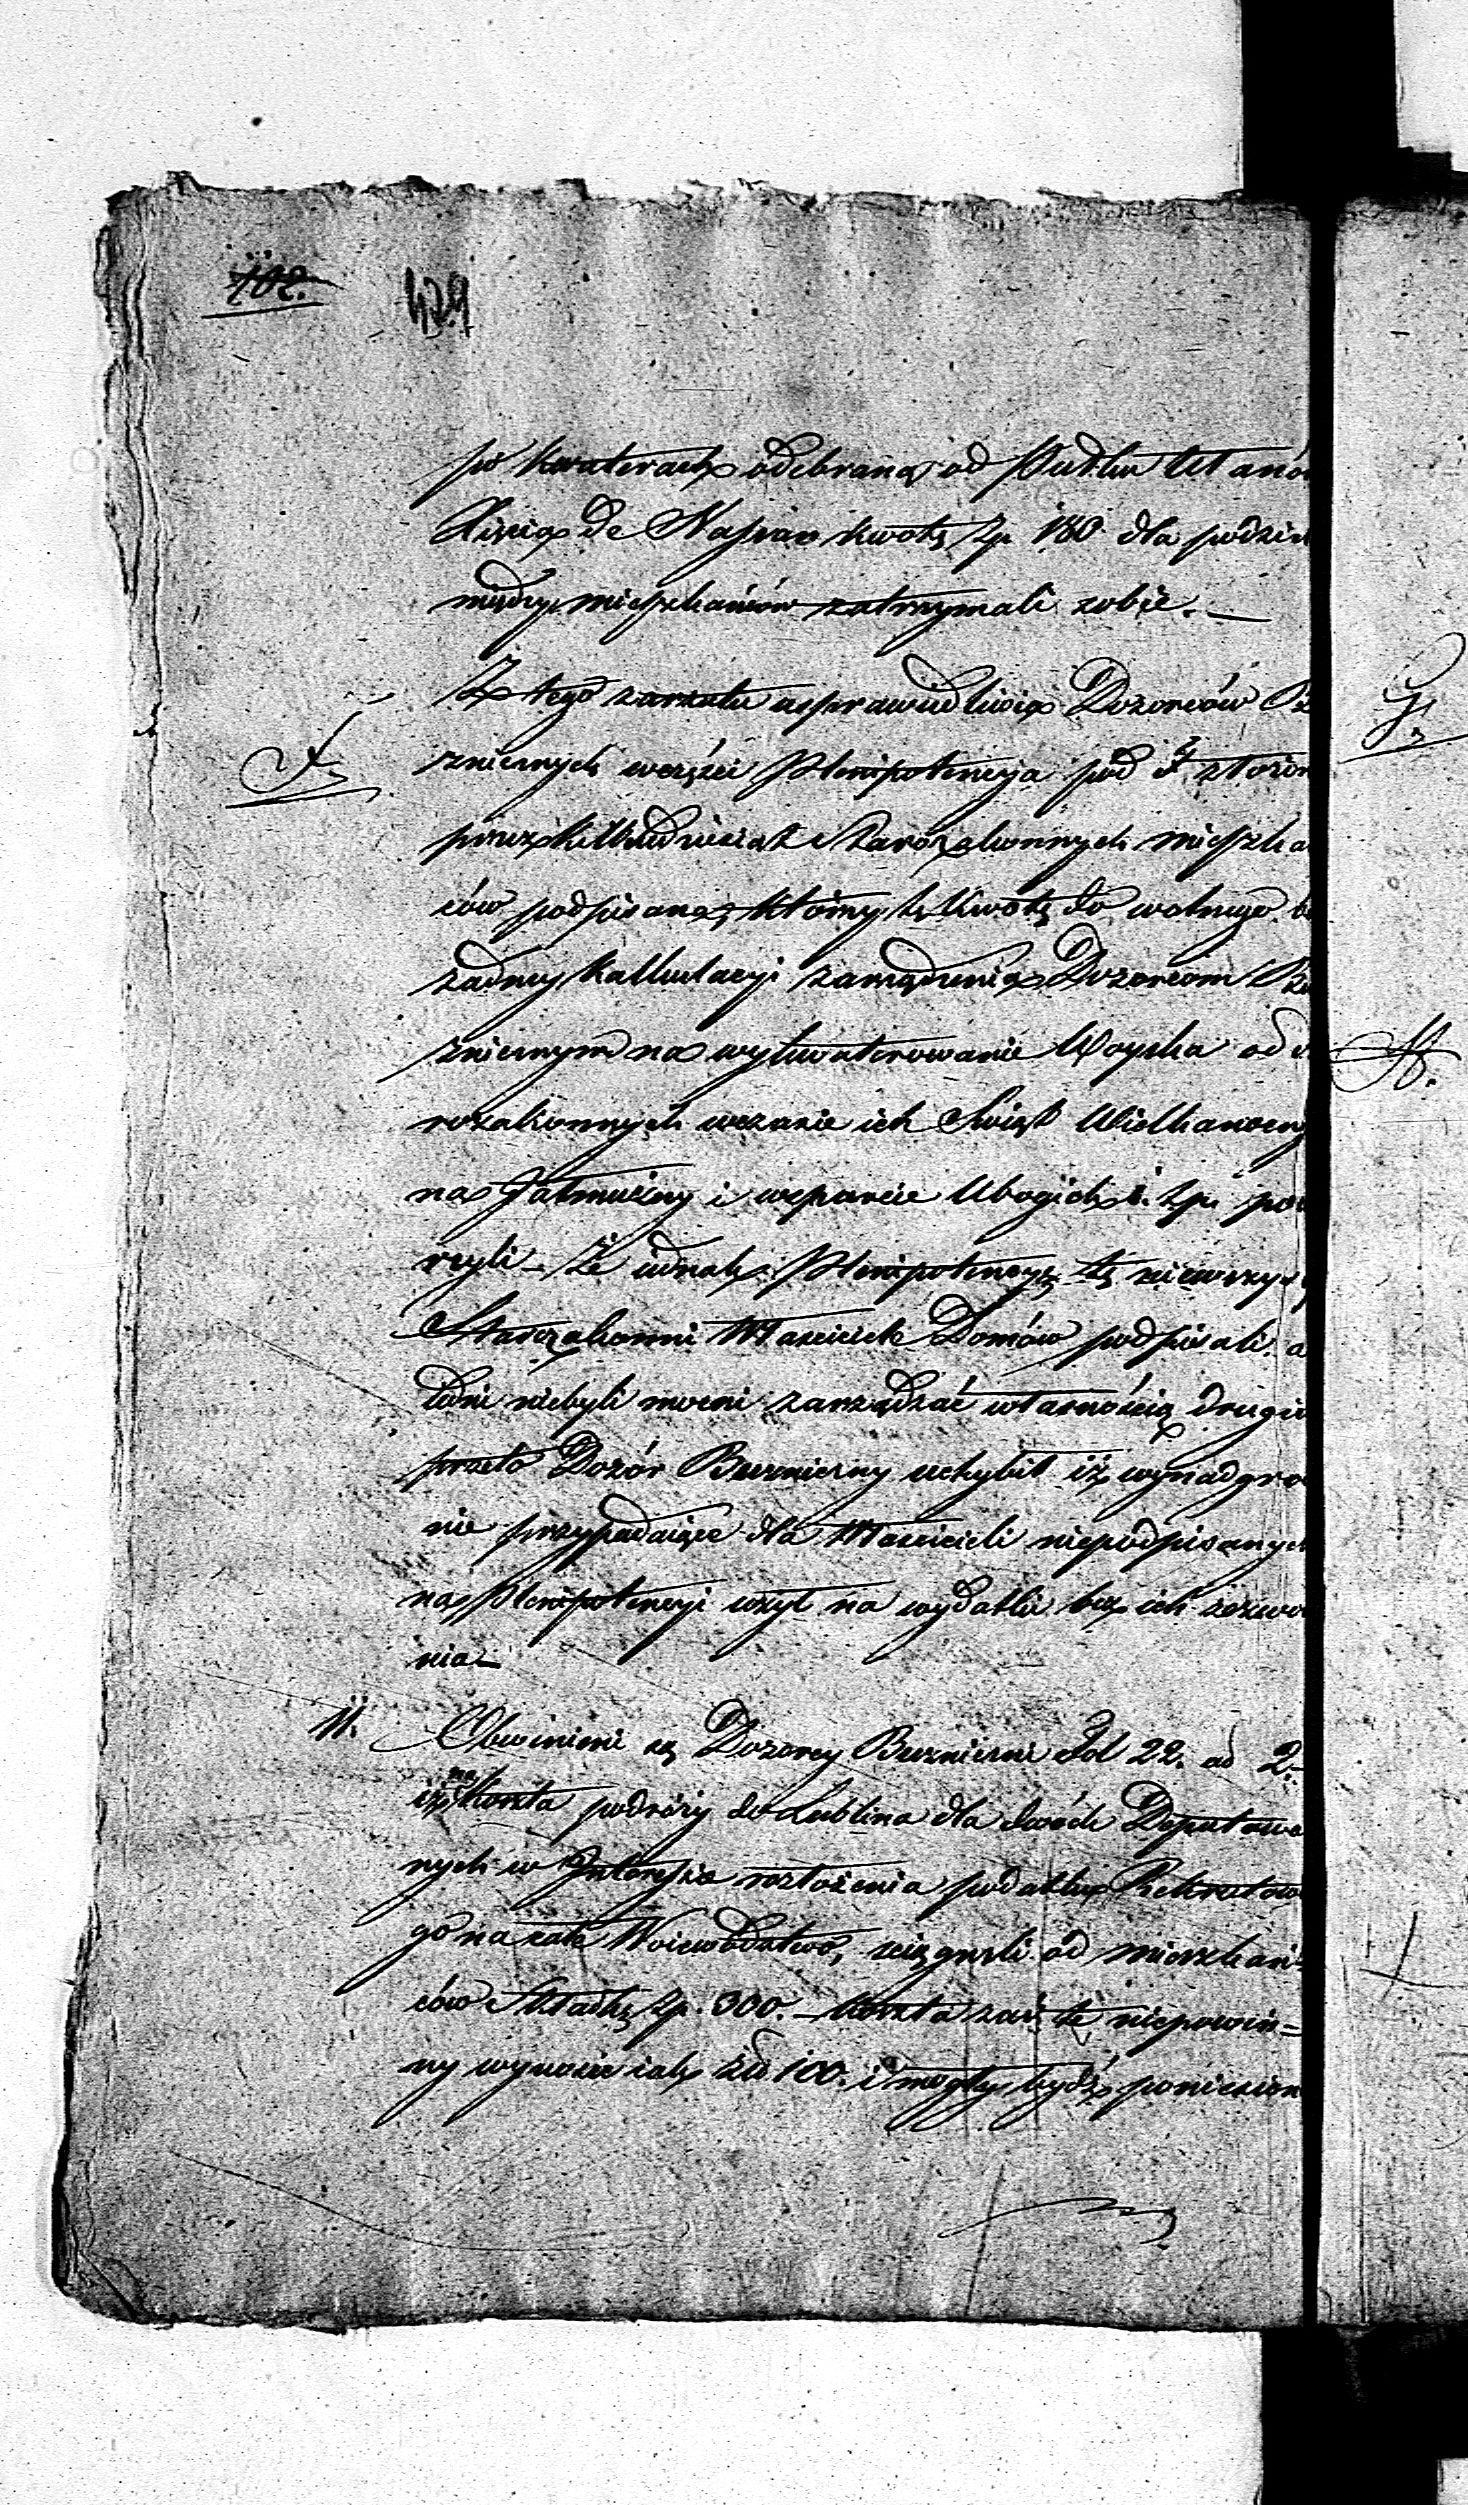 102.
429
po kwaterach odebraną od Pułku Ułanów
Xięcia de Nassau kwotę Zp. 180 dla podziału
między mieszkańców zatrzymali sobie. —
Z tego zarzutu usprawiedliwia Dozorców Bo
F.
zniczych wczęści Plenipotencya pod F złożon
przez kilkudziesiąt Starozakonnych mieszka
ców podpisana, którzy tę kwotę do wolnego b
żadney kalkulacyi zarządzenia Dozorcom Bo
żnicznym na wykwaterowanie Woyska od
rozakonnych wczasie ich Swiąt Wielkanocny
na Jałmużny i wsparcie Ubogich i. t. p. po
rzyli — Że iednak Plenipotencyę tę niewszys
Starozakonni Właściciele Domów podpisali, a
iedni niebyli mocni zarządzać własnością drugi
przeto Dozór Buzniczny uchybił iż wynadgro
nie przypadaiące dla Właścicieli niepodpisanych
na Plenipotencyi użył na wydatki bez ich zezwo
nia —
11. Obwinieni są Dozorcy Buzniczni Fol 22. ad 2. —
iż na koszta podróży do Lublina dla dwóch Deputowa
nych w Interessie rozłożenia podatku Rekrutow
go na całe Woiewództwo, sciągneli od mieszkań-
ców Składkę Zp. 300. — koszta zaś te niepowin-
ny wynosić iak Złp 100. i mogły bydź poniesion
G.
H.